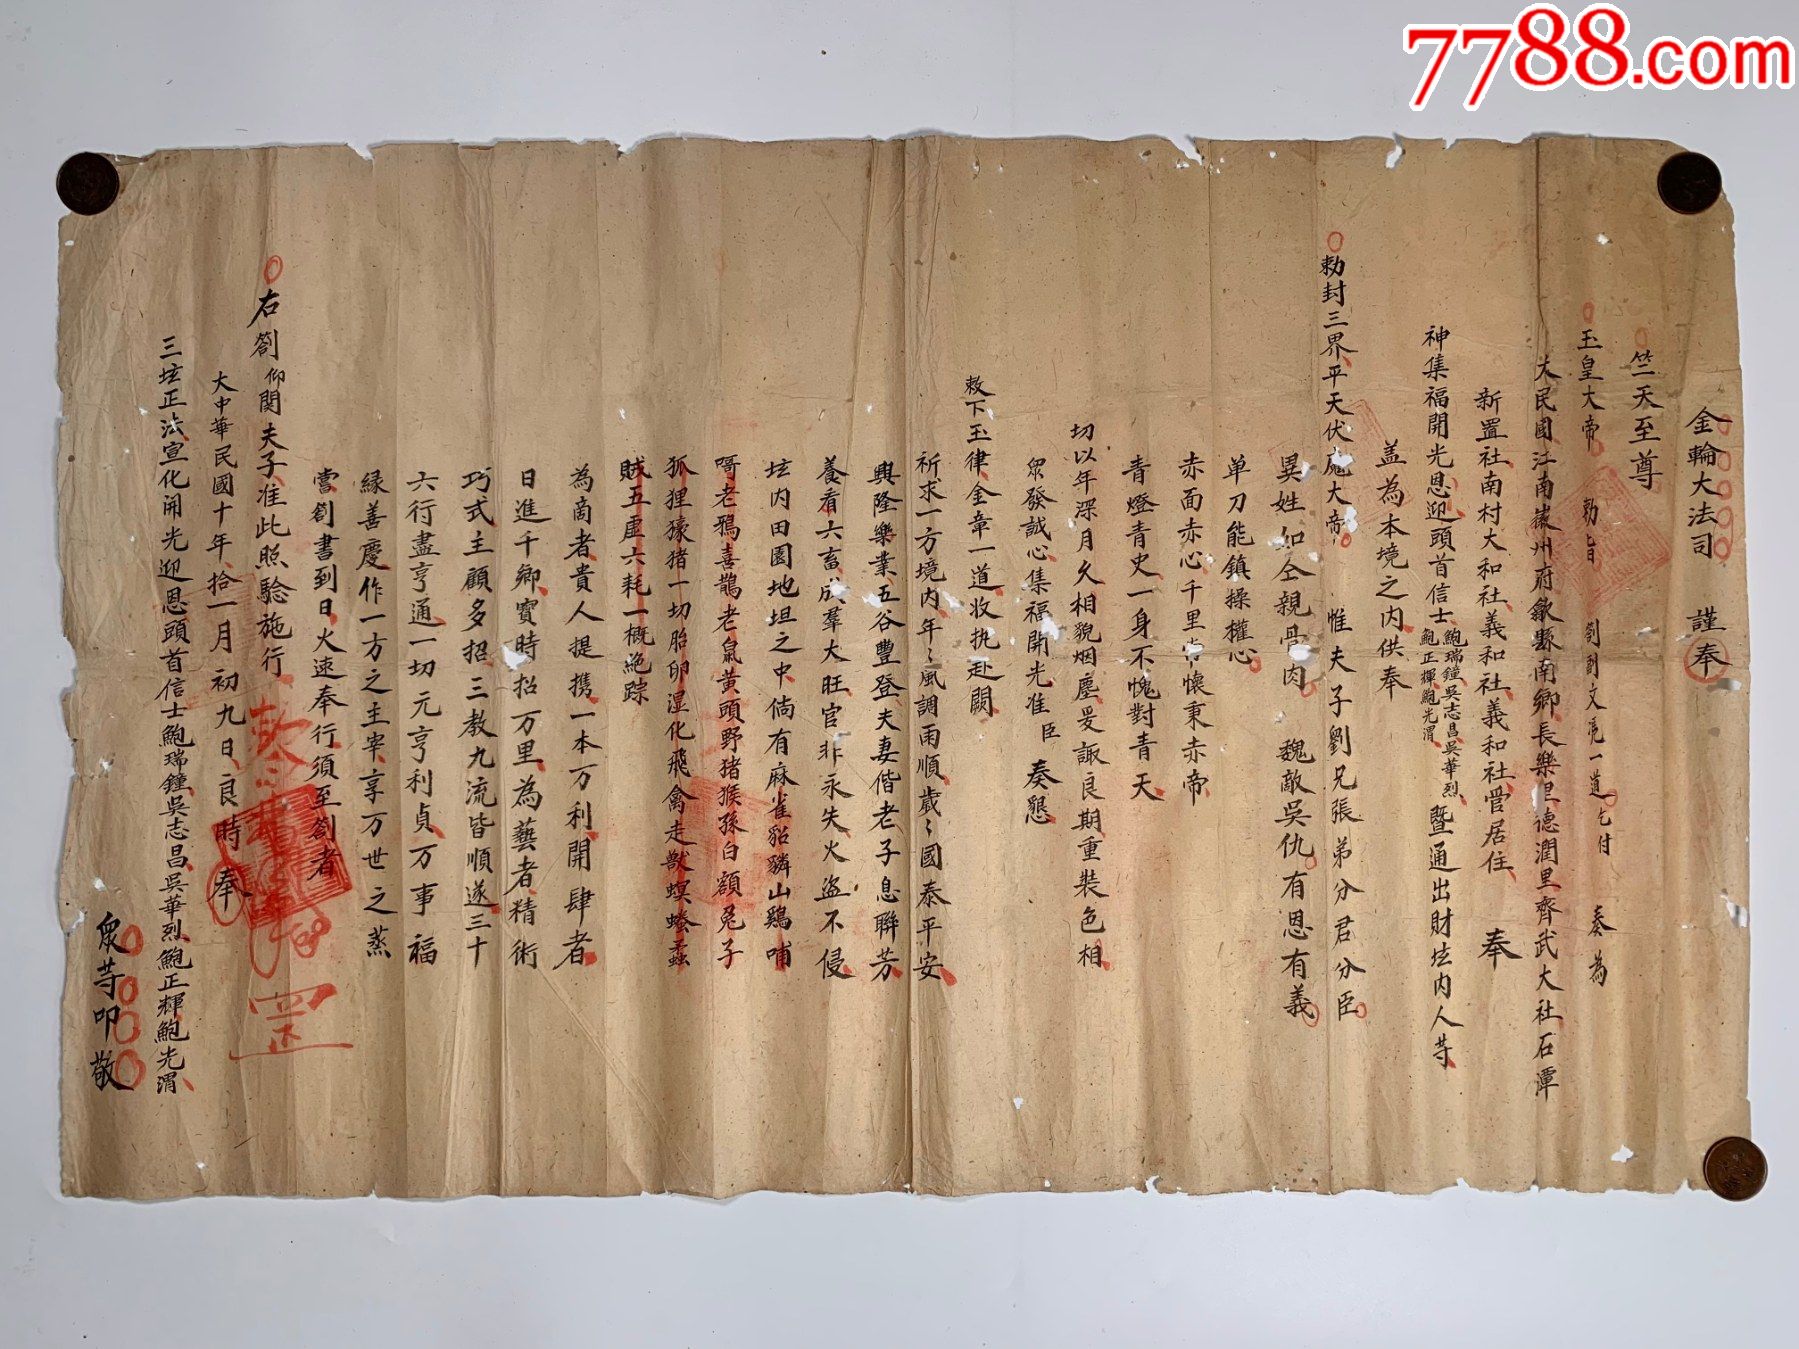 7788.com
金輪大法司 謹奉
竺天至尊
玉皇大帝 勅旨 劄副文 一道 付 奏為
大民國江南徽州府歙縣南鄉長樂里德潤里齊武大社石潭
新置社南村大和社義和社義和社管居住 奉
神集福開光恩迎頭首信士鮑瑞鐘吳志昌吳華烈鮑正輝鮑光渭 暨通出財坛内人等
盖為本境之内供奉
勅封三界平天伏魔大帝 惟夫子劉兄張弟分君分臣
異姓如仝親骨肉 魏敵吳仇有恩有義
单刀能鎮操權心
赤面赤心千里常懷秉赤帝
青燈青史一身不愧對青天
切以年深月久相貌烟塵爰諏良期重裝色相
眾發誠心集福開光准臣 奏懇
敕下玉律金章一道收执赴闕
祈求一方境内年〻風調雨順歲〻國泰平安
興隆樂業五谷豐登夫妻偕老子息聯芳
養看六畜成羣大旺官非永失火盜不侵
坛内田園地坦之中倘有麻雀貂獜山鷄哺
啼老鴉喜鵲老鼠黃頭野猪猴孫白額兔子
狐狸獴猪一切胎卵湿化飛禽走獸螟螣蟊
賊五虛六耗一概絶踪
為商者貴人提携一本万利開肆者
日進千鄉賓時招万里為藝者精術
巧式主顧多招三教九流皆順遂三十
六行盡亨通一切元亨利貞万事福
緑善慶作一方之主宰享万世之蒸
嘗劄書到日火速奉行須至劄者
右劄仰関夫子准此照驗施行
大中華民國十年拾一月初九日良時奉
三坛正法宣化開光迎恩頭首信士鮑瑞鐘吳志昌吳華烈鮑正輝鮑光渭
眾等叩敬